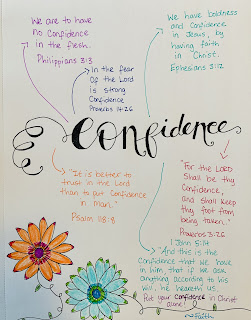 We are to have
no Confidence
in the flesh.
Philippians 3:3
We have boldness
and Confidence
in Jesus, by
having faith
in Christ.
Ephesians 3:12
In the fear
Of the Lord
is strong
Confidence
Proverbs 14:26
Confidence
"It is better to
trust in the Lord
than to put Confidence
in man."
Psalm 118:8
"For the LORD
Shall be thy
Confidence,
and shall keep
thy foot from
being taken."
Proverbs 3:26
1 John 5:14
"And this is the
Confidence that we have
in him that if we ask
anything according to his
Will, he heareth us.
Put your confidence in Christ
alone!